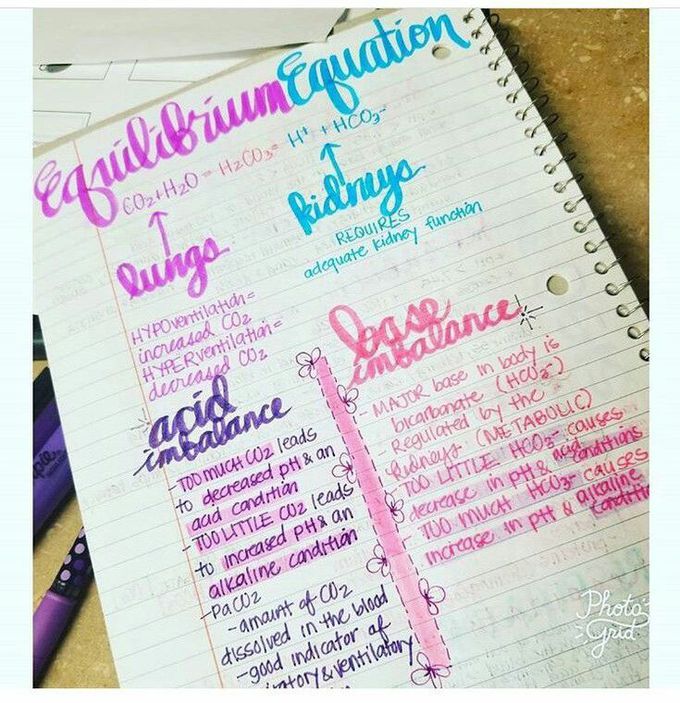 Equilibrium Equation
CO2+H2O = H2CO3= H+ + HCO3-
lungs
kidneys
REQUIRES
adequate kidney function
HYPOventilation=
increased CO2
HYPERventilation=
decreased CO2
acid
imbalance
-TOO MUCH CO2 leads
to decreased pH & an
acid condition
-TOO LITTLE CO2 leads
to increased pH & an
alkaline condition
-PaCO2
-amount of CO2
dissolved in the blood
-good indicator of
ratory & ventilatory
base
imbalance
- MAJOR base in body is
bicarbonate (HCO3-)
- Regulated by the
kidneys (METABOLIC)
- TOO LITTLE HCO3- causes
decrease in pH & acid conditions
- TOO MUCH HCO3- causes
increase in pH & alkaline
conditi
Photo
Grid